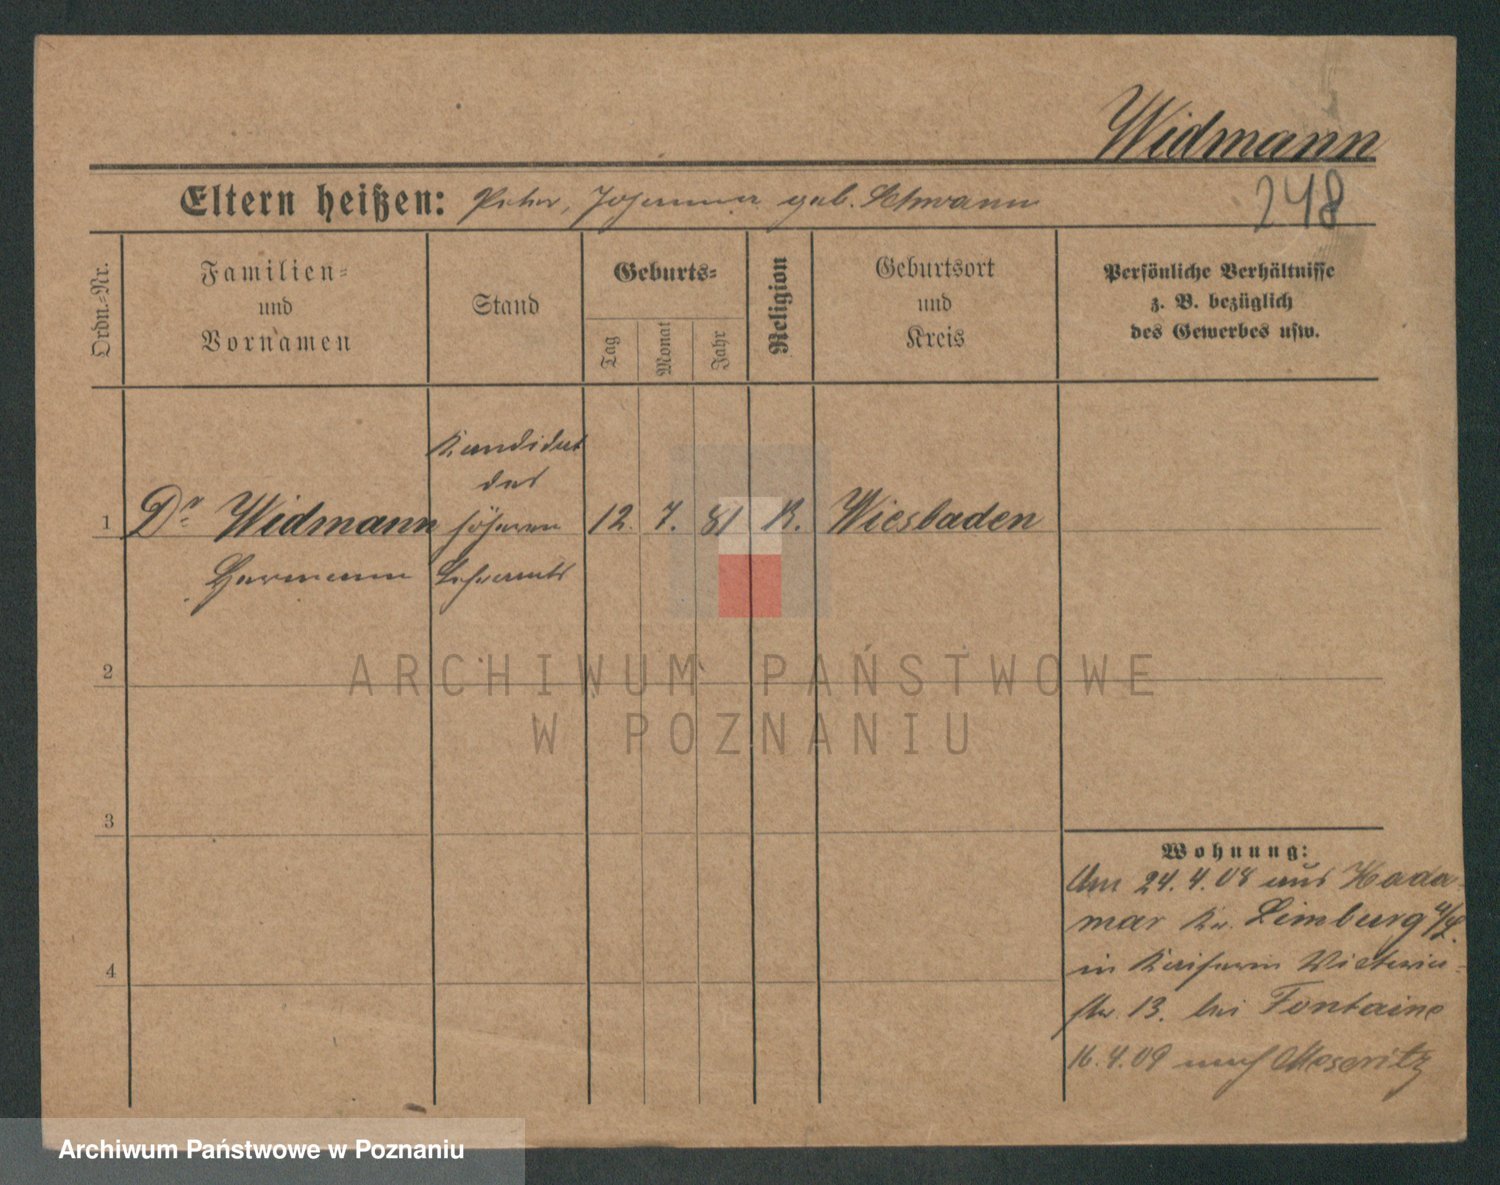 Widmann
Eltern heißen: Peter, Johanna geb. Schwann
248
Ordn.=Nr.
Familien=
und
Vornamen
Stand
Geburts=
Tag
Monat
Jahr
Religion
Geburtsort
und
Kreis
Persönliche Verhältnisse
z. B. bezüglich
des Gewerbes usw.
Kandidat
des
1 Dr. Widmann höheren 12. 7. 81 K. Wiesbaden
Hermann Lehramts
ARCHIWUM PAŃSTWOWE
W POZNANIU
2
3
4
Wohnung:
Am 24.4.08 aus Hada-
mar Kr. Limburg a/L.
in Kaiserin Victoria-
str. 13. bei Fontaine
16.4.09 nach Meseritz
Archiwum Państwowe w Poznaniu